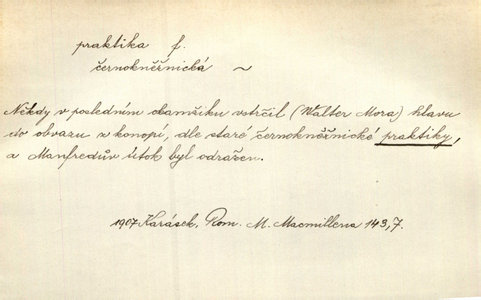 praktika f.
černokněžnická ~
Někdy v posledním okamžiku vstrčil (Walter Mora) hlavu
do obvazu z konopí, dle staré černokněžnické praktiky,
a Manfredův útok byl odražen.
1907 Karásek, Rom. M. Macmillena 143,7.